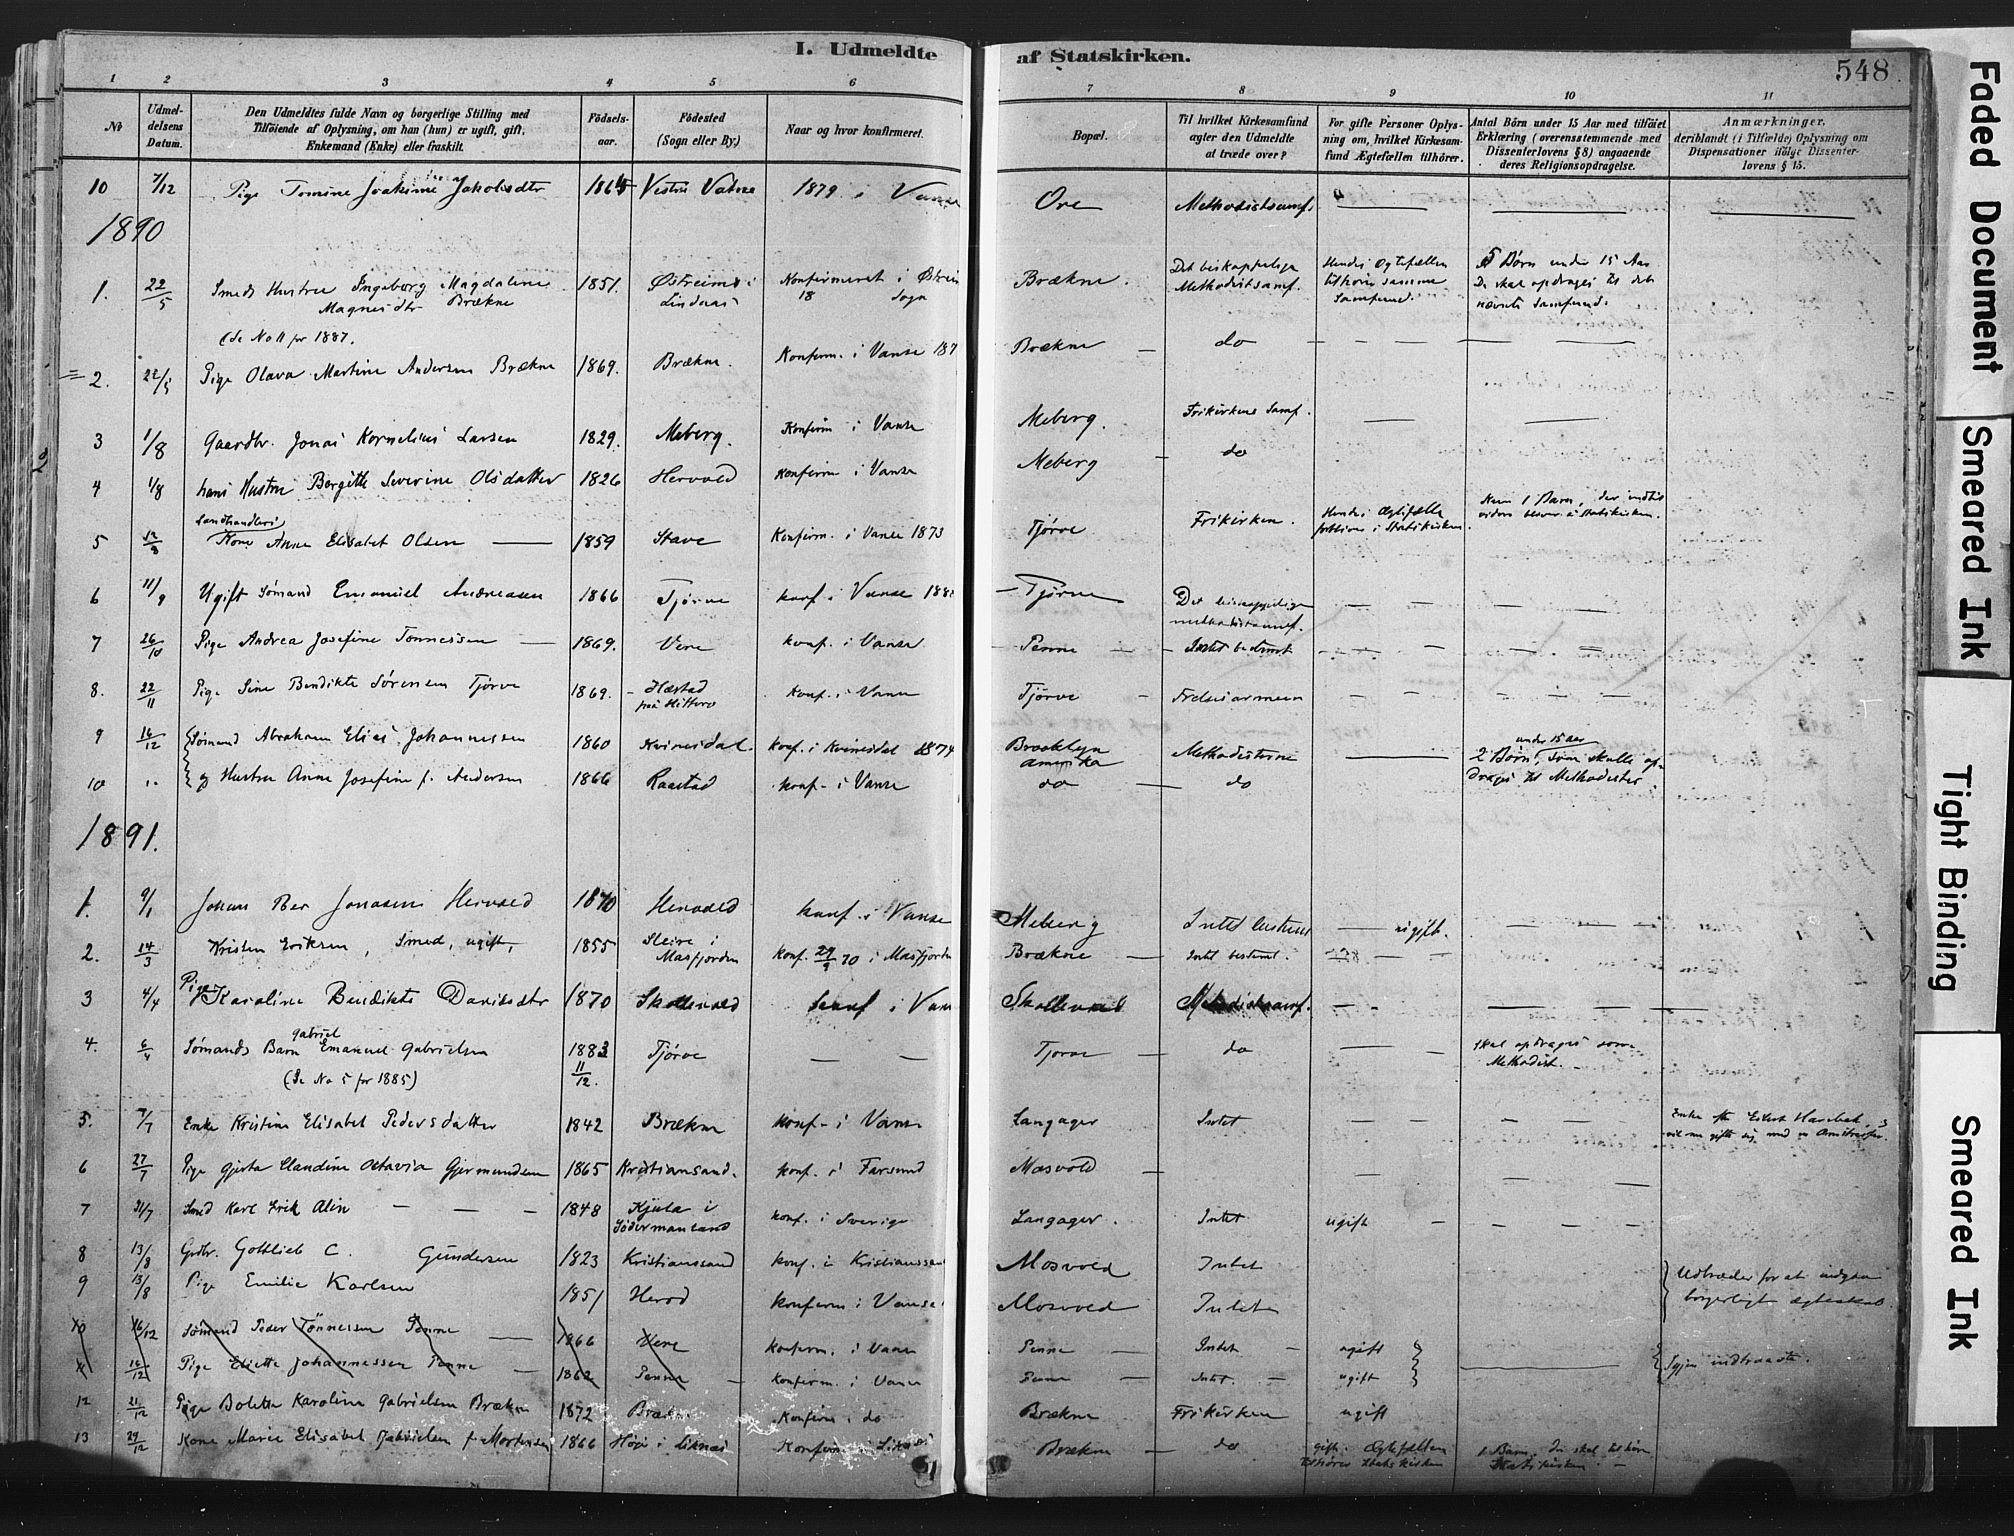 I. Udmeldte af Statskirken.
548
1 2 3 4 5 6 7 8 9 10 11
No
Udmeldelsens Datum.
Den Udmeldtes fulde Navn og borgerlige Stilling med
Tilføiende af Oplysning, om han (hun) er ugift, gift,
Enkemand (Enke) eller fraskilt.
Fødselsaar.
Fødested
(Sogn eller By.)
Naar og hvor konfirmeret.
Bopæl.
Til hvilket Kirkesamfund
agter den Udmeldte
at træde over?
For gifte Personer Oplys-
ning om, hvilket Kirkesam-
fund Ægtefællen tilhører.
Antal Børn under 15 Aar med tilføiet
Erklæring (overensstemmende med
Dissenterlovens § 8) angaaende
deres Religionsopdragelse.
Anmærkninger,
deriblandt (i Tilfælde) Oplysning om
Dispensationer ifølge Dissenter-
lovens § 15.
10 7/12 Pige Tomine Joakime Jakobsdtr 1865 Vestre Vatne 1879 i Vanse Ore Methodistsamf.
1890
1. 22/5 Smeds Hustru Ingeborg Magdalene 1851. Østreimd i Konfirmeret i Østrein Brækne. Det biskoppelige Hendes Ægtefælle 5 Børn under 15 Aar
Magnesdtr Brækne Lindnæs 18 Sogn Methodistsamf. tilhører samme De skal opdrages til det
Samfund. nævnte Samfund.
(Se No 11 for 1887.
2. 22/5 Pige Olava Martine Andersen Brækne 1869. Brækne. Konfirm. i Vanse 187 Brækne — do
3 1/8 Gaardbr. Jonas Kornelius Larsen 1829. Meberg. Konfirm i Vanse Meberg. Frikirkens Samf.
4 1/8 hans Hustru Borgitte Severine Olsdatter 1826 Hervold Konfirm i Vanse Meberg — do
Landhandleri
5 Kone Anne Elisabet Olsen — 1859 Stave Konfirm. i Vanse 1873 Tjørve Frikirken. Hendes Ægtefælle Kun 1 Barn, der indtil
forbliver i Statskirken. videre bliver i Statskirken.
6 11/9 Ugift Sømand Emanuel Andreasen 1866 Tjørve konf. i Vanse 188 Tjørve Det biskoppelige
methodistsamf.
7 26/10 Pige Andrea Josefine Tønnessen — 1869. Vere konf. i Vanse Penne — Intet bestemt
8. 22/11 Pige Sine Bendikte Sørensen Tjørve 1869. Hæstad konf. i Vanse Tjørve — Frelsesarmeen
paa Hitterø
9 16/12 Sømand Abraham Elias Johannessen 1860 Kvinesdal. konf. i Kvinesdal 1874 Brooklyn Methodisterne under 15 Aar
Amerika 2 Børn, som skulle op-
10 " og Hustru Anne Josefine f. Andersen 1866 Raastad konf. i Vanse do — do drages til Methodister
1891.
1. 9/1 Johan Ber Jonasen Hervold 1870 Hervold konf. i Vanse Meberg Intet bestemt — ugift.
2. 14/3 Kristen Eriksen, Smed, ugift, 1855 Sleire i konf. 29/9 70 i Masfjorden Brækne — Intet bestemt.
Masfjorden
3 4/4 Pige Karoline Bendikte Davidsdtr 1870 Skollevold konf i Vanse Skollevold Methodistsamf.
Gabriel
4. 6/4 Sømands Barn Emanuel Gabrielsen 1883 Tjørve — — Tjørve — do skal opdrages som
11/12. Methodist.
(Se No 5 for 1885)
5. 7/7 Enke Kristine Elisabet Pedersdatter 1842 Brækne konf. i Vanse Langager Intet Enke efter
vil nu gifte sig med
6 27/7 Pige Gjerta Claudine Octavia Gjermundsen 1865 Kristiansand. konf. i Farsund Mosvold —
7 31/7 Smed Karl Erik Alin — — — 1848 Kjula i konf. i Sverige Langager. Intet ugift
Södermanland
8 13/8 Grdbr. Gottlieb C. Gundersen 1823 Kristianssand konf. i Kristianssand Mosvold Intet Udtræder for at indgaa
9 13/8 Pige Emilie Karlsen 1851 Herod konfirm i Vanse Mosvold Intet borgerligt Ægteskab.
10 16/12 Sømand Peder Tønnessen Penne — 1866 Here konfirm. i Vanse Penne — Intet — ugift
11 16/12 Pige Eliette Johannessen Penne — 1862 Penne — konfirm. i Vanse Penne — Intet. — ugift Igjen indtraadte.
12 21/12 Pige Bolette Karoline Gabrielsen Brækne 1872 Brækne Konfirm. i do Brækne Frikirken ugift
13 29/12 Kone Marie Elisabet Gabrielsen f. Mortensen 1866 Høie i Liknes Konfirm. i Liknes Brækne — do gift. Ægtefællen 1 Barn. Det skal tilhøre
tilhører Statskirken Statskirken. —
Faded Document
Smeared Ink
Tight Binding
Smeared Ink